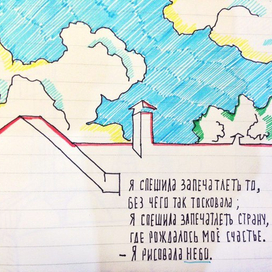 Я СПЕШИЛА ЗАПЕЧАТЛЕТЬ ТО,
БЕЗ ЧЕГО ТАК ТОСКОВАЛА;
Я СПЕШИЛА ЗАПЕЧАТЛЕТЬ СТРАНУ,
ГДЕ РОЖДАЛОСЬ МОЁ СЧАСТЬЕ.
– Я РИСОВАЛА НЕБО.